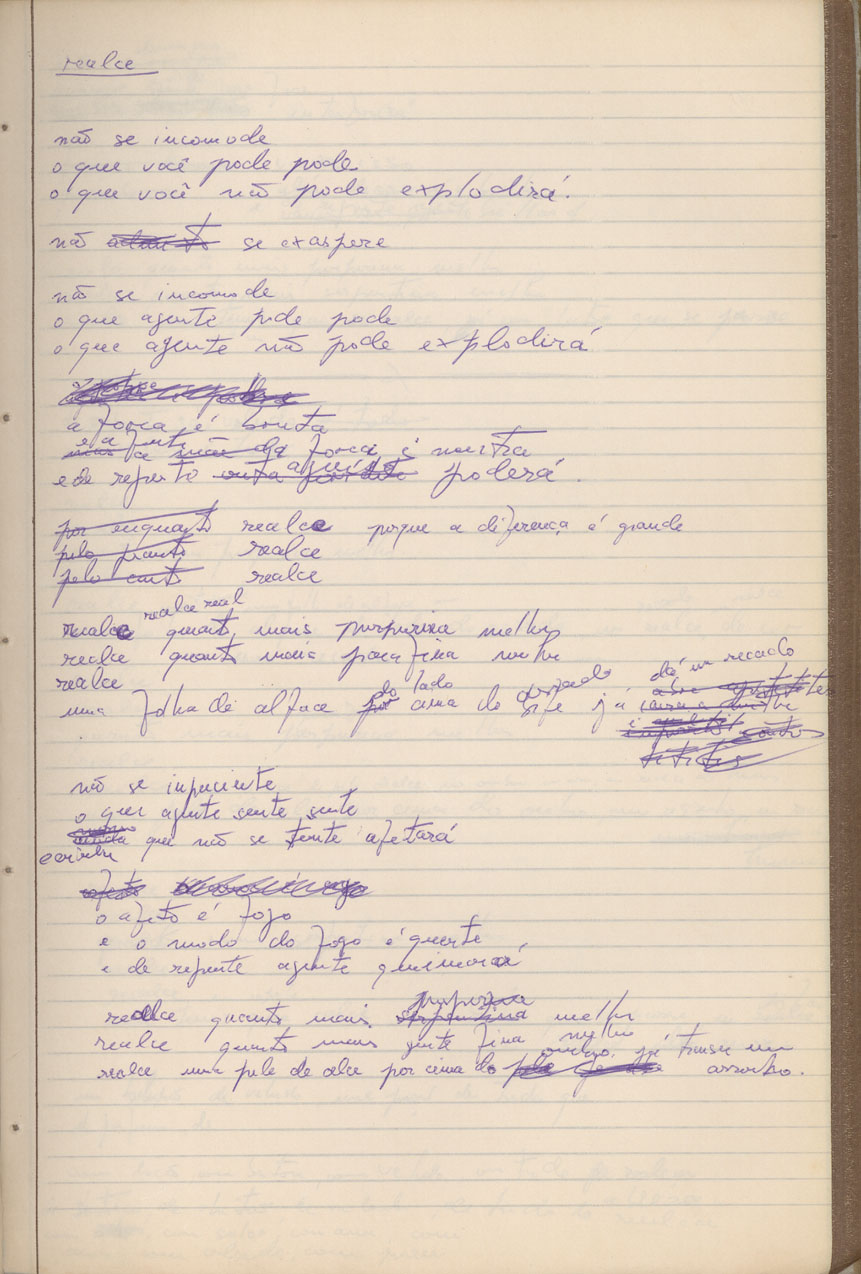 realce
não se incomode
o que você pode pode
o que você não pode explodirá.
não se exaspere
não se incomode
o que agente pode pode
o que agente não pode explodirá
a força é bruta
e a fonte da força é neutra
e de repente agente poderá.
por enquanto realce porque a diferença é grande
pelo pranto realce
pelo canto realce
realce real
realce quanto mais purpurina melhor
realce quanto mais parafina melhor
realce
dá um recado
do lado
uma folha de alface por cima do bife já
não se impaciente
o que agente sente sente
ainda que não se tente afetará
o afeto é fogo
e o modo do fogo é quente
e de repente agente queimará
purpurina
realce quanto mais serpentina melhor
realce quanto mais gente fina melhor
realce uma pele de alce por cima do ombro já trouxe um arrocho.